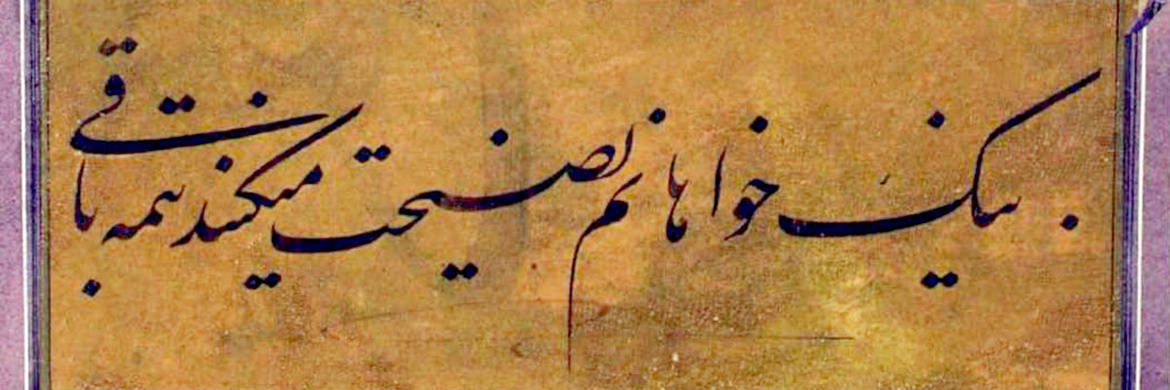 نیک خواهانم نصیحت میکنند همه با